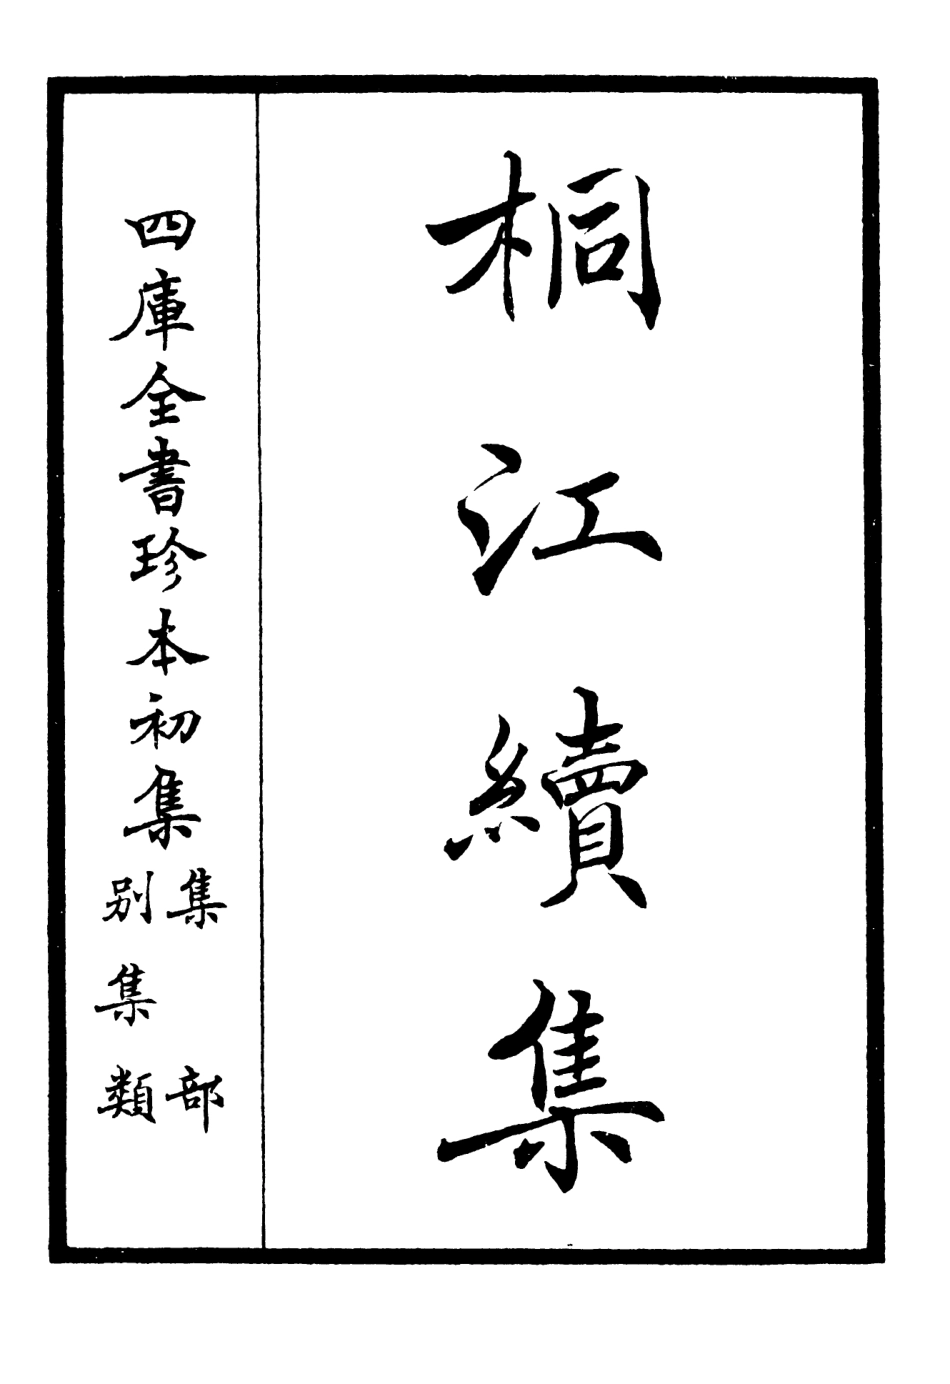 桐江續集
四庫全書珍本初集
集部
别集類